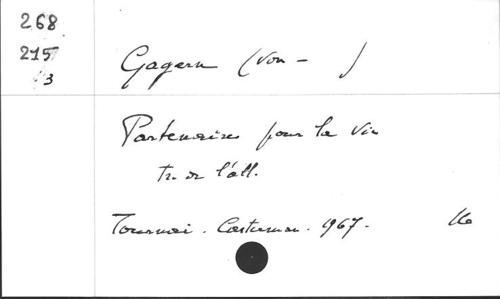 268
215
3
Gagern (von - )
Partenaires pour la vie
tr. de l'all.
Tournai. Casterman. 1967.